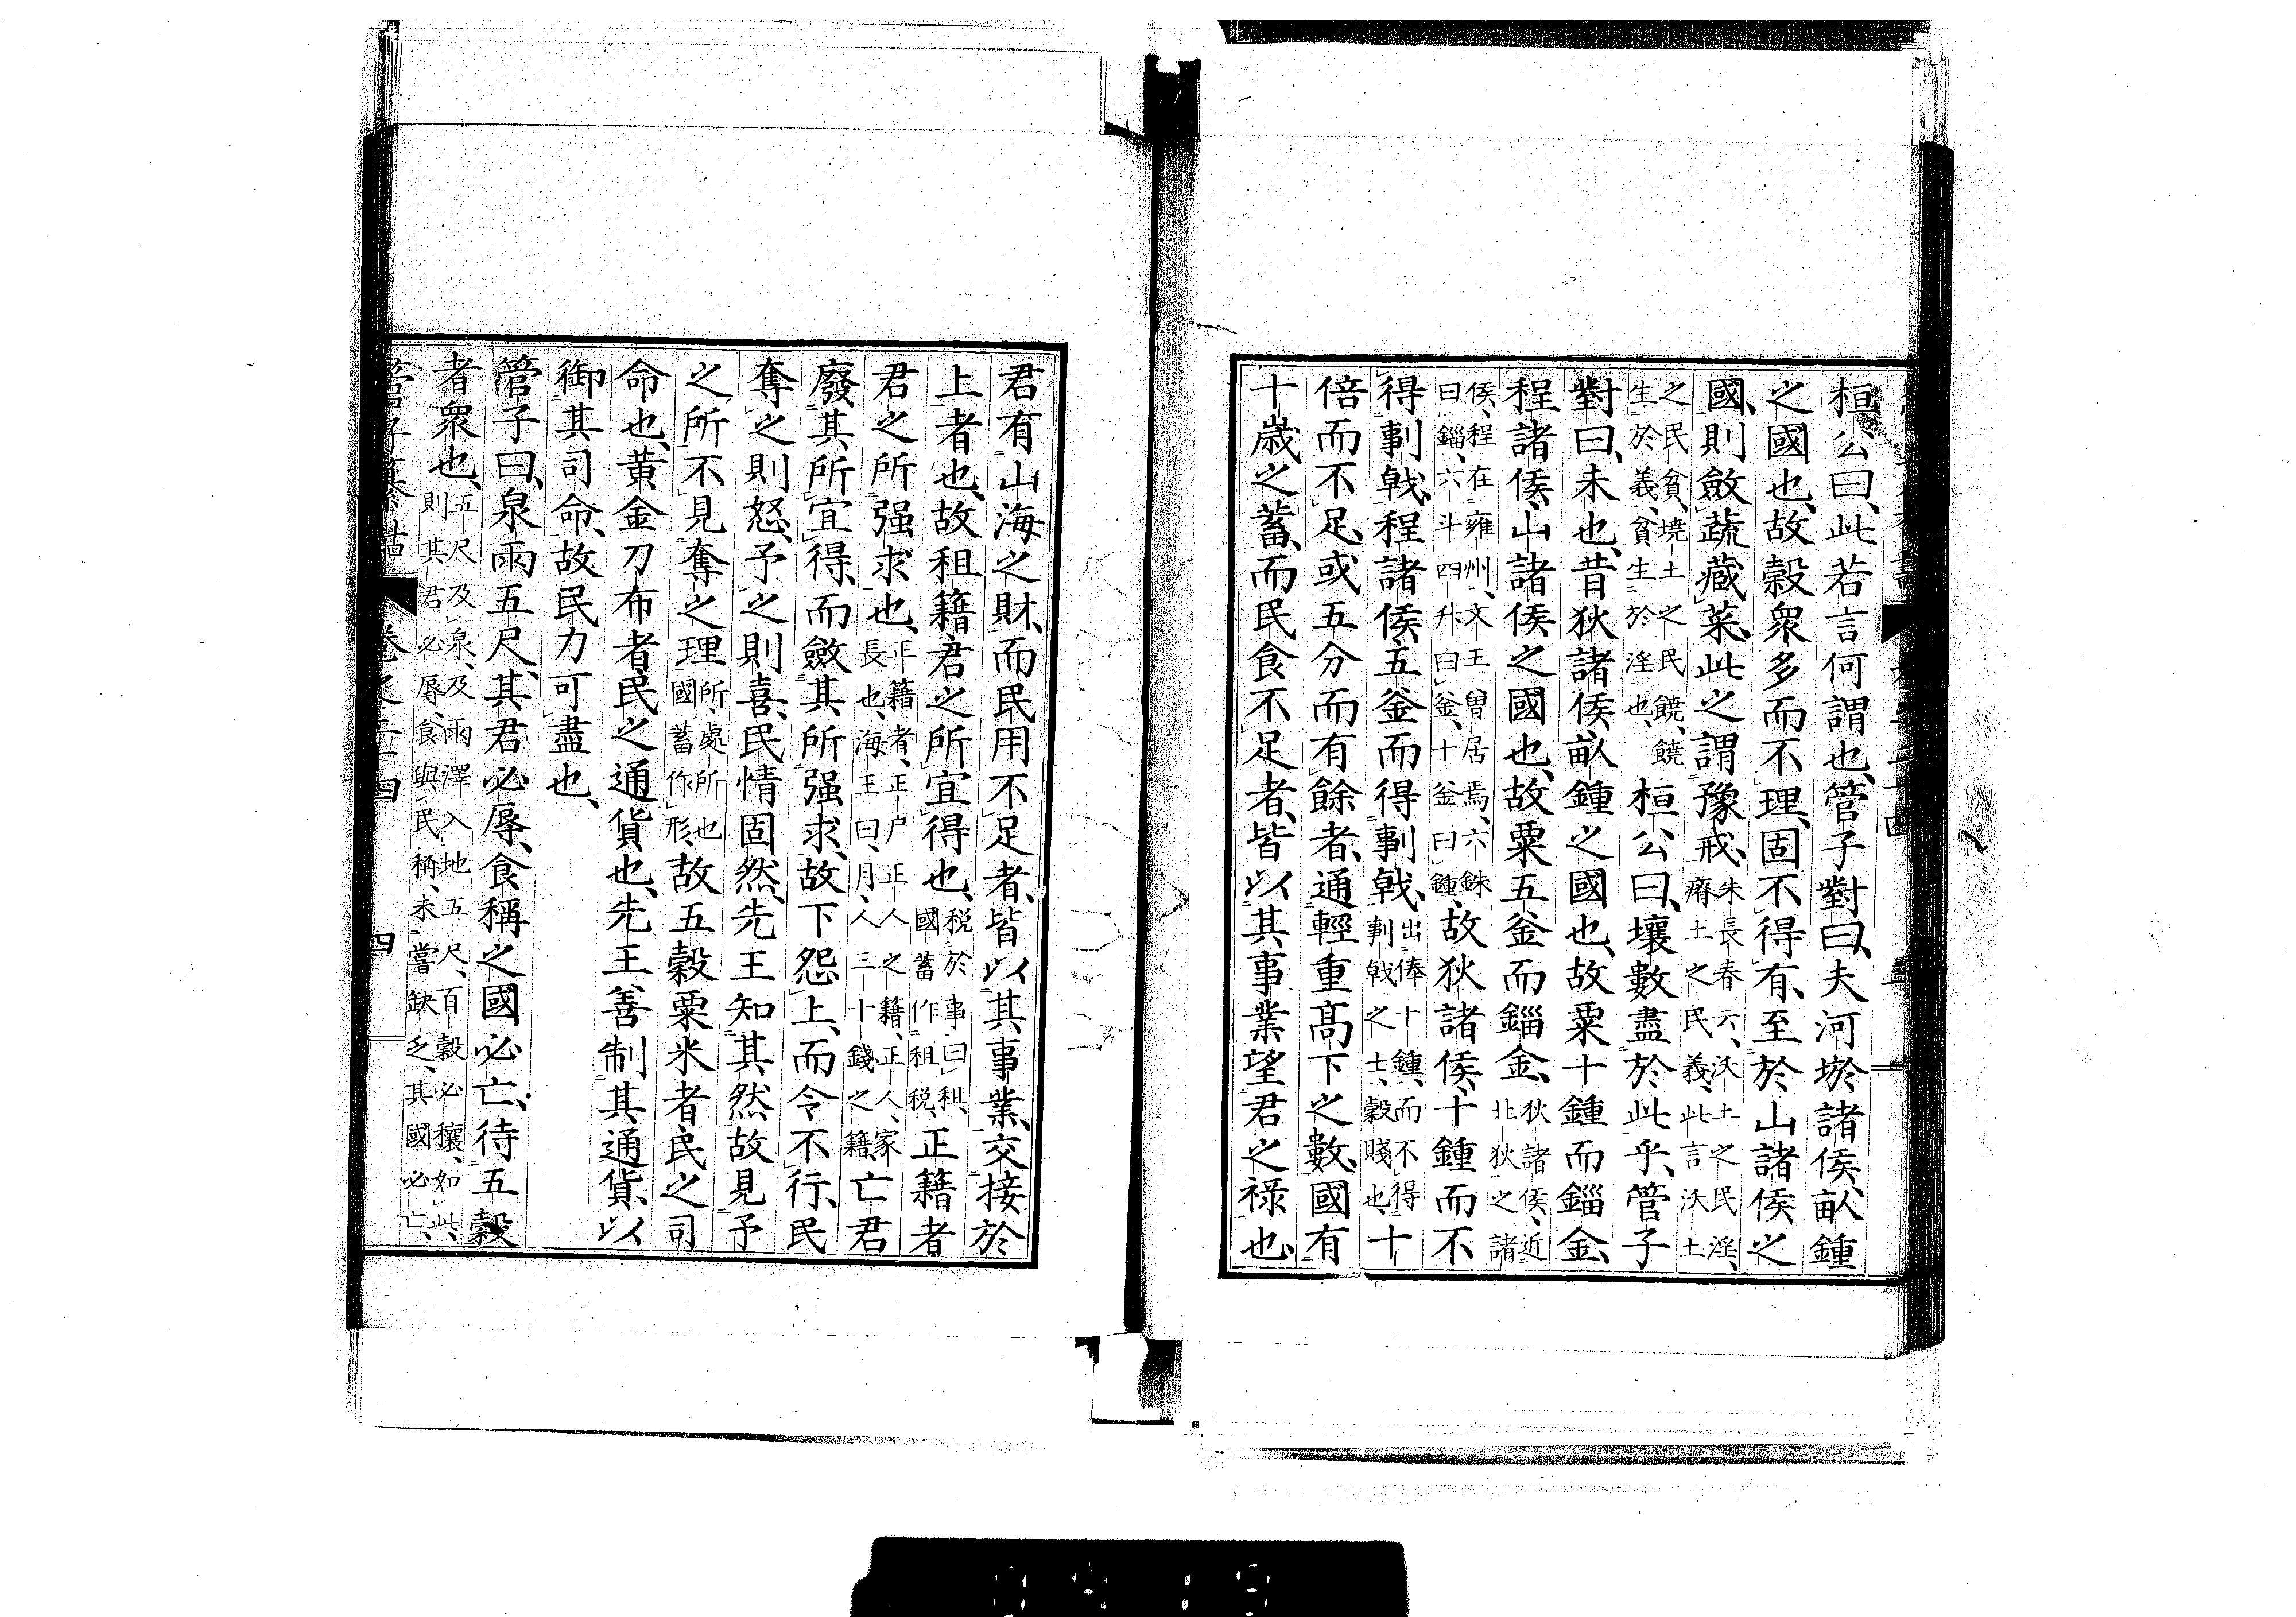 桓公曰、此若言何謂也、管子對曰、夫河埁諸侯、畝鍾
之國也、故穀衆多而不理、固不得有、至於山諸侯之
國、則斂蔬藏菜、此之謂豫戒、朱長春云、沃土之民淫、瘠土之民義、此言沃土
之民貧、境土之民饒、饒生於義、貧生於淫也、桓公曰、壤數盡於此乎、管子
對曰、未也、昔狄諸侯、畝鍾之國也、故粟十鍾而錙金、
程諸侯、山諸侯之國也、故粟五釜而錙金、狄諸侯、近北狄之諸
侯、程在雍州、文王曽居焉、六銖曰錙、六斗四升曰釜、十釜曰鍾、故狄諸侯、十鍾而不
得剚戟、程諸侯、五釜而得剚戟、出俸十鍾、而不得剚戟之士、穀賤也、十
倍而不足、或五分而有餘者、通輕重高下之數、國有
十歲之蓄、而民食不足者、皆以其事業望君之祿也、
君有山海之財、而民用不足者、皆以其事業、交接於
上者也、故租籍、君之所宜得也、税於事曰租、國蓄作租税、正籍者
君之所强求也、正籍者、正户正人之籍、正人、家長也、海王曰、月、人三十錢之籍、亡君
廢其所宜得、而斂其所强求、故下怨上、而令不行、民
奪之則怒、予之則喜、民情固然、先王知其然、故見予
之所、不見奪之理、所、處所也國蓄作形、故五穀粟米者、民之司
命也、黄金刀布者、民之通貨也、先王善制其通貨、以
御其司命、故民力可盡也、
管子曰、泉雨五尺、其君必辱、食稱之國必亡、待五穀
者衆也、五尺及泉、及雨澤入地五尺、百穀必穰、如此、則其君必辱、食與民稱、未嘗缺乏、其國必亡、
管子纂詁 卷之二十四 四